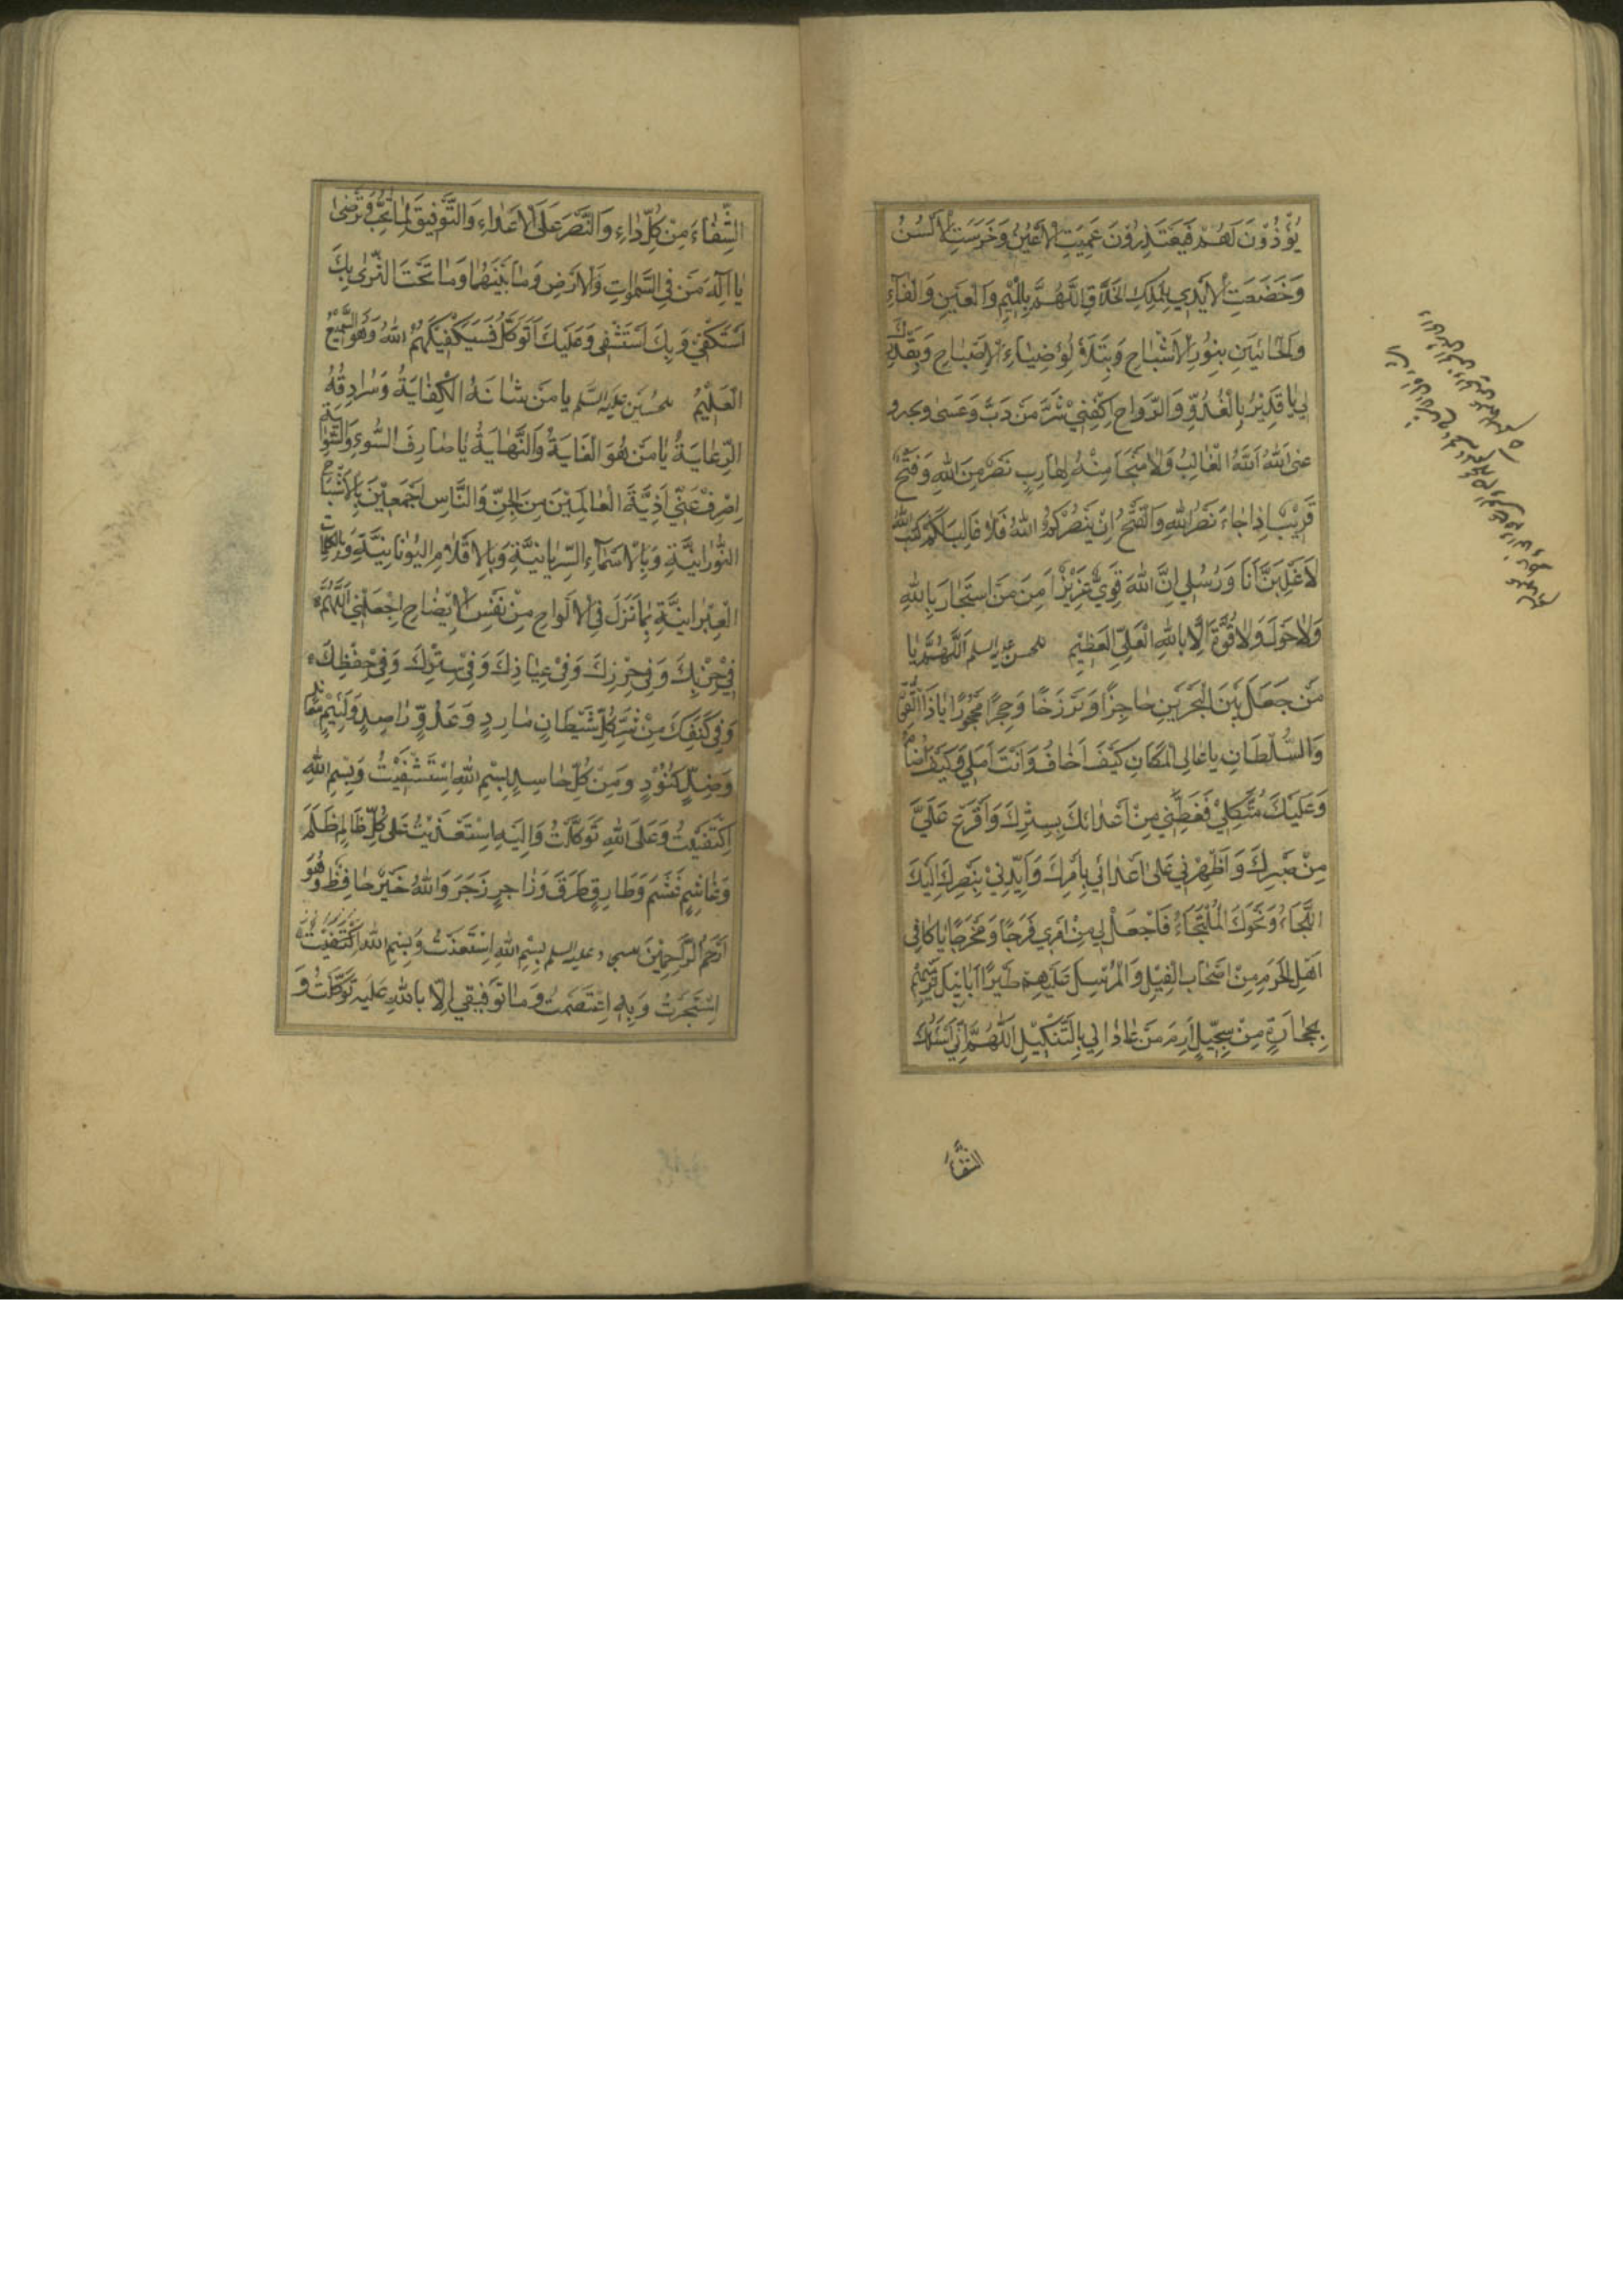 يُؤْذَنُ لَهُمْ فَيَعْتَذِرُونَ عَمِيَتِ الْاَعْيُنُ وَخَرِسَتِ الْاَلْسُنُ
وَخَضَعَتِ الْاَيْدِي لِلْمَلِكِ الْخَلَّاقِ اَللّٰهُمَّ بِالْمِيْمِ وَالْعَيْنِ وَالْفَآءِ
وَالْحَائَيْنِ بِنُورِ الْاَشْبَاحِ وَبِتَلَأْلُؤِ ضِيَاءِ الْاِصْبَاحِ وَبِتَقْدِيرِكَ
لِي يَا قَدِيْرُ بِالْغُدُوِّ وَالرَّوَاحِ اِكْفِنِيْ شَرَّ مَنْ دَبَّ وَمَشٰى وَتَجَبَّرَ وَ
عَتٰى اَللّٰهُ اَللّٰهُ الْغَالِبُ وَلَا مَنْجَا مِنْهُ لِهَارِبٍ نَصْرٌ مِنَ اللّٰهِ وَفَتْحٌ
قَرِيْبٌ اِذَا جَاءَ نَصْرُ اللّٰهِ وَالْفَتْحُ اِنْ يَنْصُرْكُمُ اللّٰهُ فَلَا غَالِبَ لَكُمْ كَتَبَ اللّٰهُ
لَاَغْلِبَنَّ اَنَا وَرُسُلِي اِنَّ اللّٰهَ قَوِيٌّ عَزِيْزٌ اَمِنَ مَنِ اسْتَجَارَ بِاللّٰهِ
وَلَا حَوْلَ وَلَا قُوَّةَ اِلَّا بِاللّٰهِ الْعَلِيِّ الْعَظِيْمِ للحسن عليه السلم اَللّٰهُمَّ يَا
مَنْ جَعَلَ بَيْنَ الْبَحْرَيْنِ حَاجِزًا وَبَرْزَخًا وَحِجْرًا مَحْجُورًا يَا ذَا الْقُوَّةِ
وَالسُّلْطَانِ يَا عَالِيَ الْمَكَانِ كَيْفَ اَخَافُ وَاَنْتَ اَمَلِي وَكَيْفَ اُضَامُ
وَعَلَيْكَ مُتَّكَلِيْ فَغَطِّنِي مِنْ اَعْدَائِكَ بِسِتْرِكَ وَاَفْرِغْ عَلَيَّ
مِنْ صَبْرِكَ وَاَظْهِرْنِي عَلٰى اَعْدَائِي بِاَمْرِكَ وَاَيِّدْنِيْ بِنَصْرِكَ اِلَيْكَ
اللَّجَاءُ وَنَحْوَكَ الْمُلْتَجَاءُ فَاجْعَلْ لِي مِنْ اَمْرِي فَرَجًا وَمَخْرَجًا يَا كَافِيَ
اَهْلِ الْحَرَمِ مِنْ اَصْحَابِ الْفِيْلِ وَالْمُرْسِلَ عَلَيْهِمْ طَيْرًا اَبَابِيْلَ تَرْمِيْهِمْ
بِحِجَارَةٍ مِنْ سِجِّيْلٍ اِرْمِ مَنْ عَادَانِي بِالتَّنْكِيْلِ اَللّٰهُمَّ اِنِّي اَسْئَلُكَ
الشِّفَاءَ
الشِّفَاءَ مِنْ كُلِّ دَاءٍ وَالنَّصْرَ عَلَى الْاَعْدَاءِ وَالتَّوْفِيْقَ لِمَا تُحِبُّ وَتَرْضٰى
يَا اِلٰهَ مَنْ فِي السَّمٰوَاتِ وَالْاَرْضِ وَمَا بَيْنَهُمَا وَمَا تَحْتَ الثَّرٰى بِكَ
اَسْتَكْفِيْ وَبِكَ اَسْتَشْفِي وَعَلَيْكَ اَتَوَكَّلُ فَسَيَكْفِيْكَهُمُ اللّٰهُ وَهُوَ السَّمِيْعُ
الْعَلِيْمُ للحُسَيْنِ عَلَيْهِ السَّلم يَا مَنْ شَانُهُ الْكِفَايَةُ وَسُرَادِقُهُ
الرِّعَايَةُ يَا مَنْ هُوَ الْغَايَةُ وَالنِّهَايَةُ يَا صَارِفَ السُّوءِ وَالسَّوَايَةِ
اِصْرِفْ عَنِّي اَذِيَّةَ الْعَالَمِيْنَ مِنَ الْجِنِّ وَالنَّاسِ اَجْمَعِيْنَ بِالْاَشْبَاحِ
النُّوْرَانِيَّةِ وَبِالْاَسْمَآءِ السِّرْيَانِيَّةِ وَبِالْاَقْلَامِ الْيُوْنَانِيَّةِ وَبِالْكَلِمَاتِ
الْعِبْرَانِيَّةِ بِمَا نَزَلَ فِي الْاَلْوَاحِ مِنْ نَفْسِ الْاِيْضَاحِ اِجْعَلْنِي اَللّٰهُمَّ
فِيْ حِزْبِكَ وَفِي حِرْزِكَ وَفِيْ عِيَاذِكَ وَفِيْ سِتْرِكَ وَفِيْ حِفْظِكَ
وَفِي كَنَفِكَ مِنْ شَرِّ كُلِّ شَيْطَانٍ مَارِدٍ وَعَدُوٍّ رَاصِدٍ وَلَئِيْمٍ مُعَانِدٍ
وَضِدٍّ كَنُوْدٍ وَمِنْ كُلِّ حَاسِدٍ بِسْمِ اللّٰهِ اسْتَشْفَيْتُ وَبِسْمِ اللّٰهِ
اكْتَفَيْتُ وَعَلَى اللّٰهِ تَوَكَّلْتُ وَاِلَيْهِ اسْتَعْدَيْتُ عَلٰى كُلِّ ظَالِمٍ ظَلَمَ
وَغَاشِمٍ غَشَمَ وَطَارِقٍ طَرَقَ وَزَاجِرٍ زَجَرَ وَاللّٰهُ خَيْرٌ حَافِظًا وَهُوَ
اَرْحَمُ الرَّاحِمِيْنَ عليه السلم بِسْمِ اللّٰهِ اسْتَعَذْتُ وَبِسْمِ اللّٰهِ اكْتَفَيْتُ
اِسْتَجَرْتُ وَبِهِ اعْتَصَمْتُ وَمَا تَوْفِيْقِي اِلَّا بِاللّٰهِ عَلَيْهِ تَوَكَّلْتُ وَ